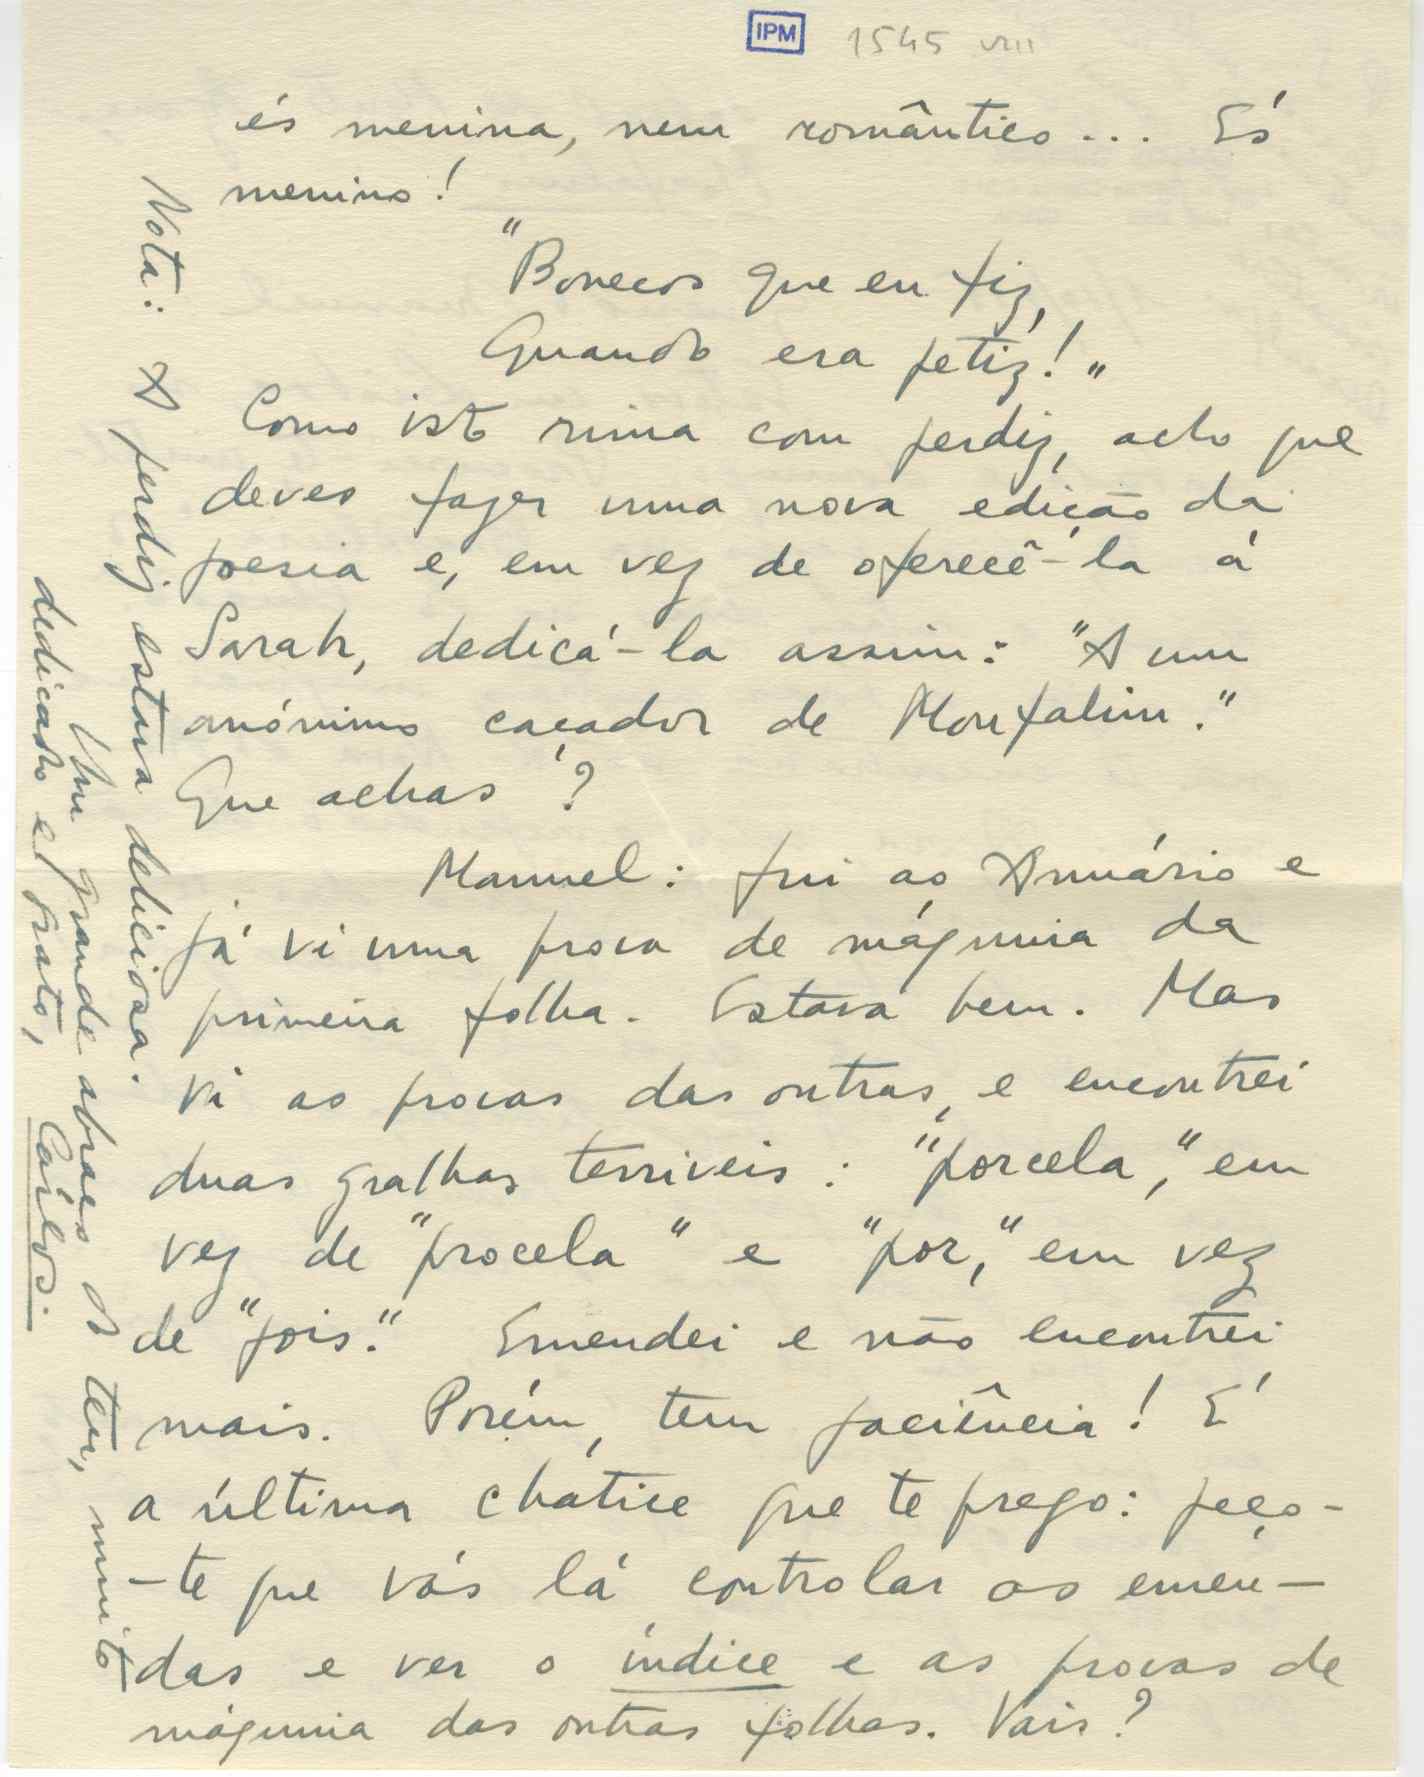 IPM 1545 VIII
és menina, nem romântico... És
menino!
"Bonecos que eu fiz,
Quando era petiz!"
Como isto rima com perdiz, acho que
deves fazer uma nova edição da
poesia e, em vez de oferecê-la á
Sarah, dedicá-la assim: "A um
anónimo caçador de Monfalim."
Que achas?
Manuel: fui ao Anuário e
já vi uma prova de máquina da
primeira folha. Estava bem. Mas
vi as provas das outras, e encontrei
duas gralhas terriveis: "porcela," em
vez de "procela" e "por," em vez
de "pois". Emendei e não encontrei
mais. Porém, tem paciência! É
a última chatice que te prego: peço-
-te que vás lá controlar as emen-
das e ver o índice e as provas de
máquina das outras folhas. Vais?
Nota: A perdiz estava deliciosa.
Um grande abraço do teu, muito
dedicado e grato,
Carlos.